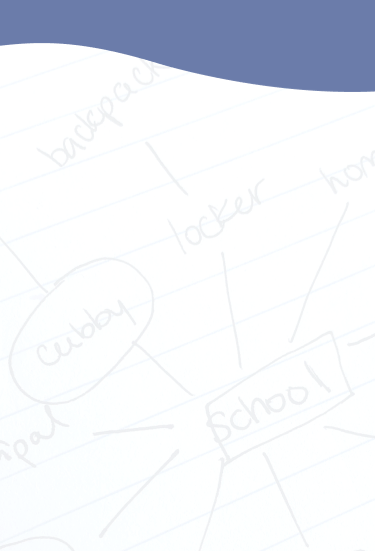 backpack
locker
cubby
School